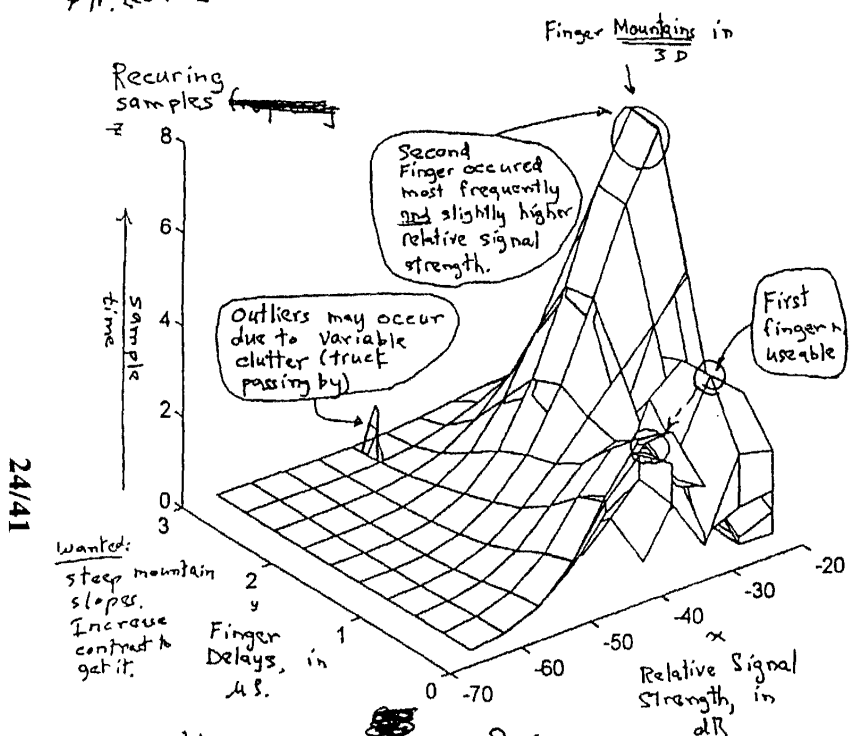 Finger Mountains in
3D
Recuring
samples
z
8
6
4
2
0
sample
time
Second
Finger occured
most frequently
and slightly higher
relative signal
strength.
Outliers may occur
due to variable
clutter (truck
passing by)
First
finger
useable
24/41
Wanted:
steep mountain
slopes.
Increase
contrast to
get it.
3
2
1
0
y
Finger
Delays, in
µs.
-70
-60
-50
-40
-30
-20
x
Relative Signal
Strength, in
dB